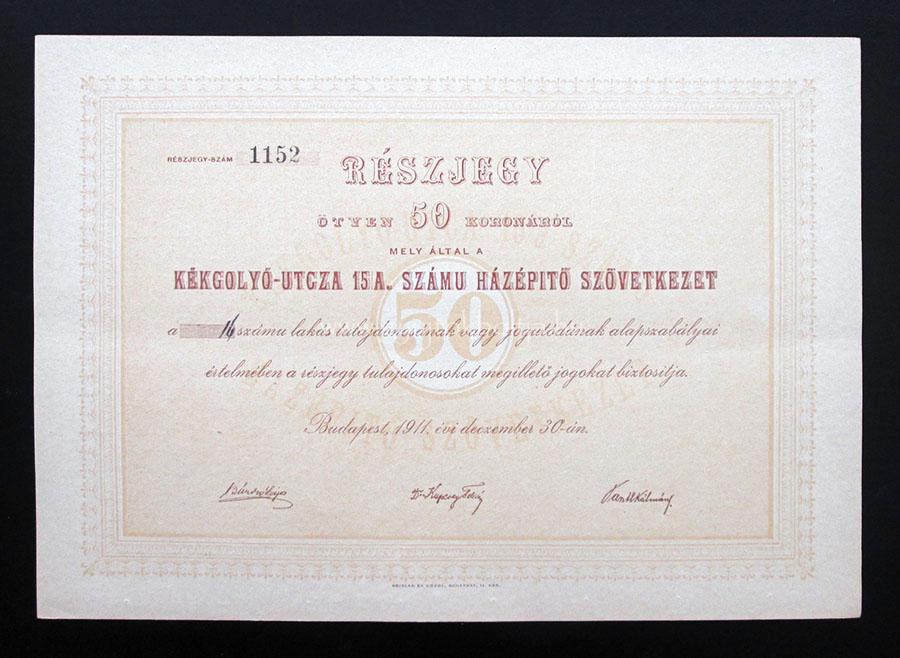 RÉSZJEGY-SZÁM 1152
RÉSZJEGY
ÖTVEN 50 KORONÁRÓL
MELY ÁLTAL A
KÉKGOLYÓ-UTCZA 15 A. SZÁMU HÁZÉPITŐ SZÖVETKEZET
a 14 számu lakás tulajdonosának vagy jogutódának alapszabályai
50
értelmében a részjegy tulajdonosokat megillető jogokat biztositja.
Budapest, 1911. évi deczember 30-án.